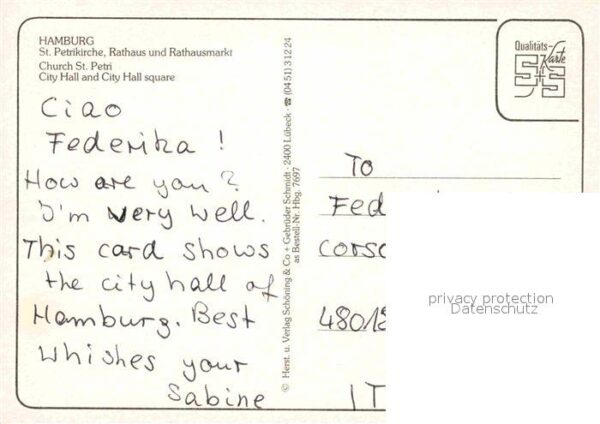 HAMBURG
St. Petrikirche, Rathaus und Rathausmarkt
Church St. Petri
City Hall and City Hall square
Ciao
Federika !
How are you ?
I'm very well.
This card shows
the city hall of
Hamburg. Best
whishes your
Sabine
© Herst. u. Verlag Schöning & Co + Gebrüder Schmidt · 2400 Lübeck · ☎ (04 51) 3 12 24
as Bestell-Nr. Hbg. 7697
Qualitäts-
Karte
S+S
To
Fed
corso
4801
IT
privacy protection
Datenschutz